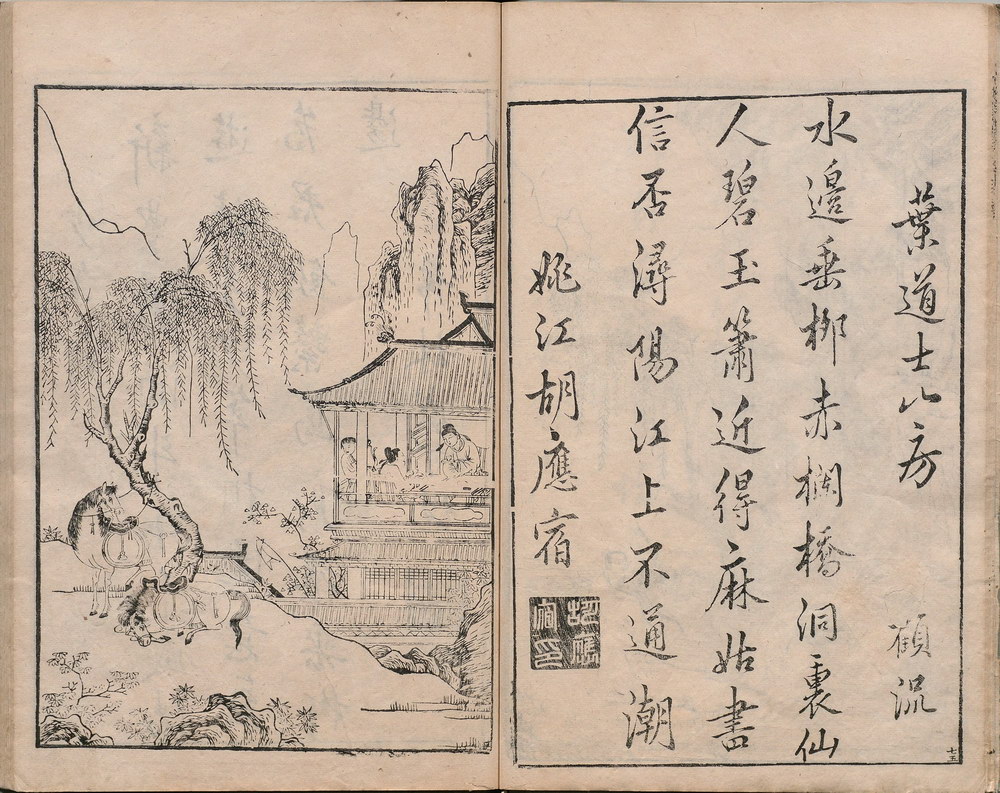 葉道士山房
顧況
水邊垂柳赤欄橋洞裏仙
人碧玉簫近得麻姑書
信否潯陽江上不通潮
姚江胡應宿
十五